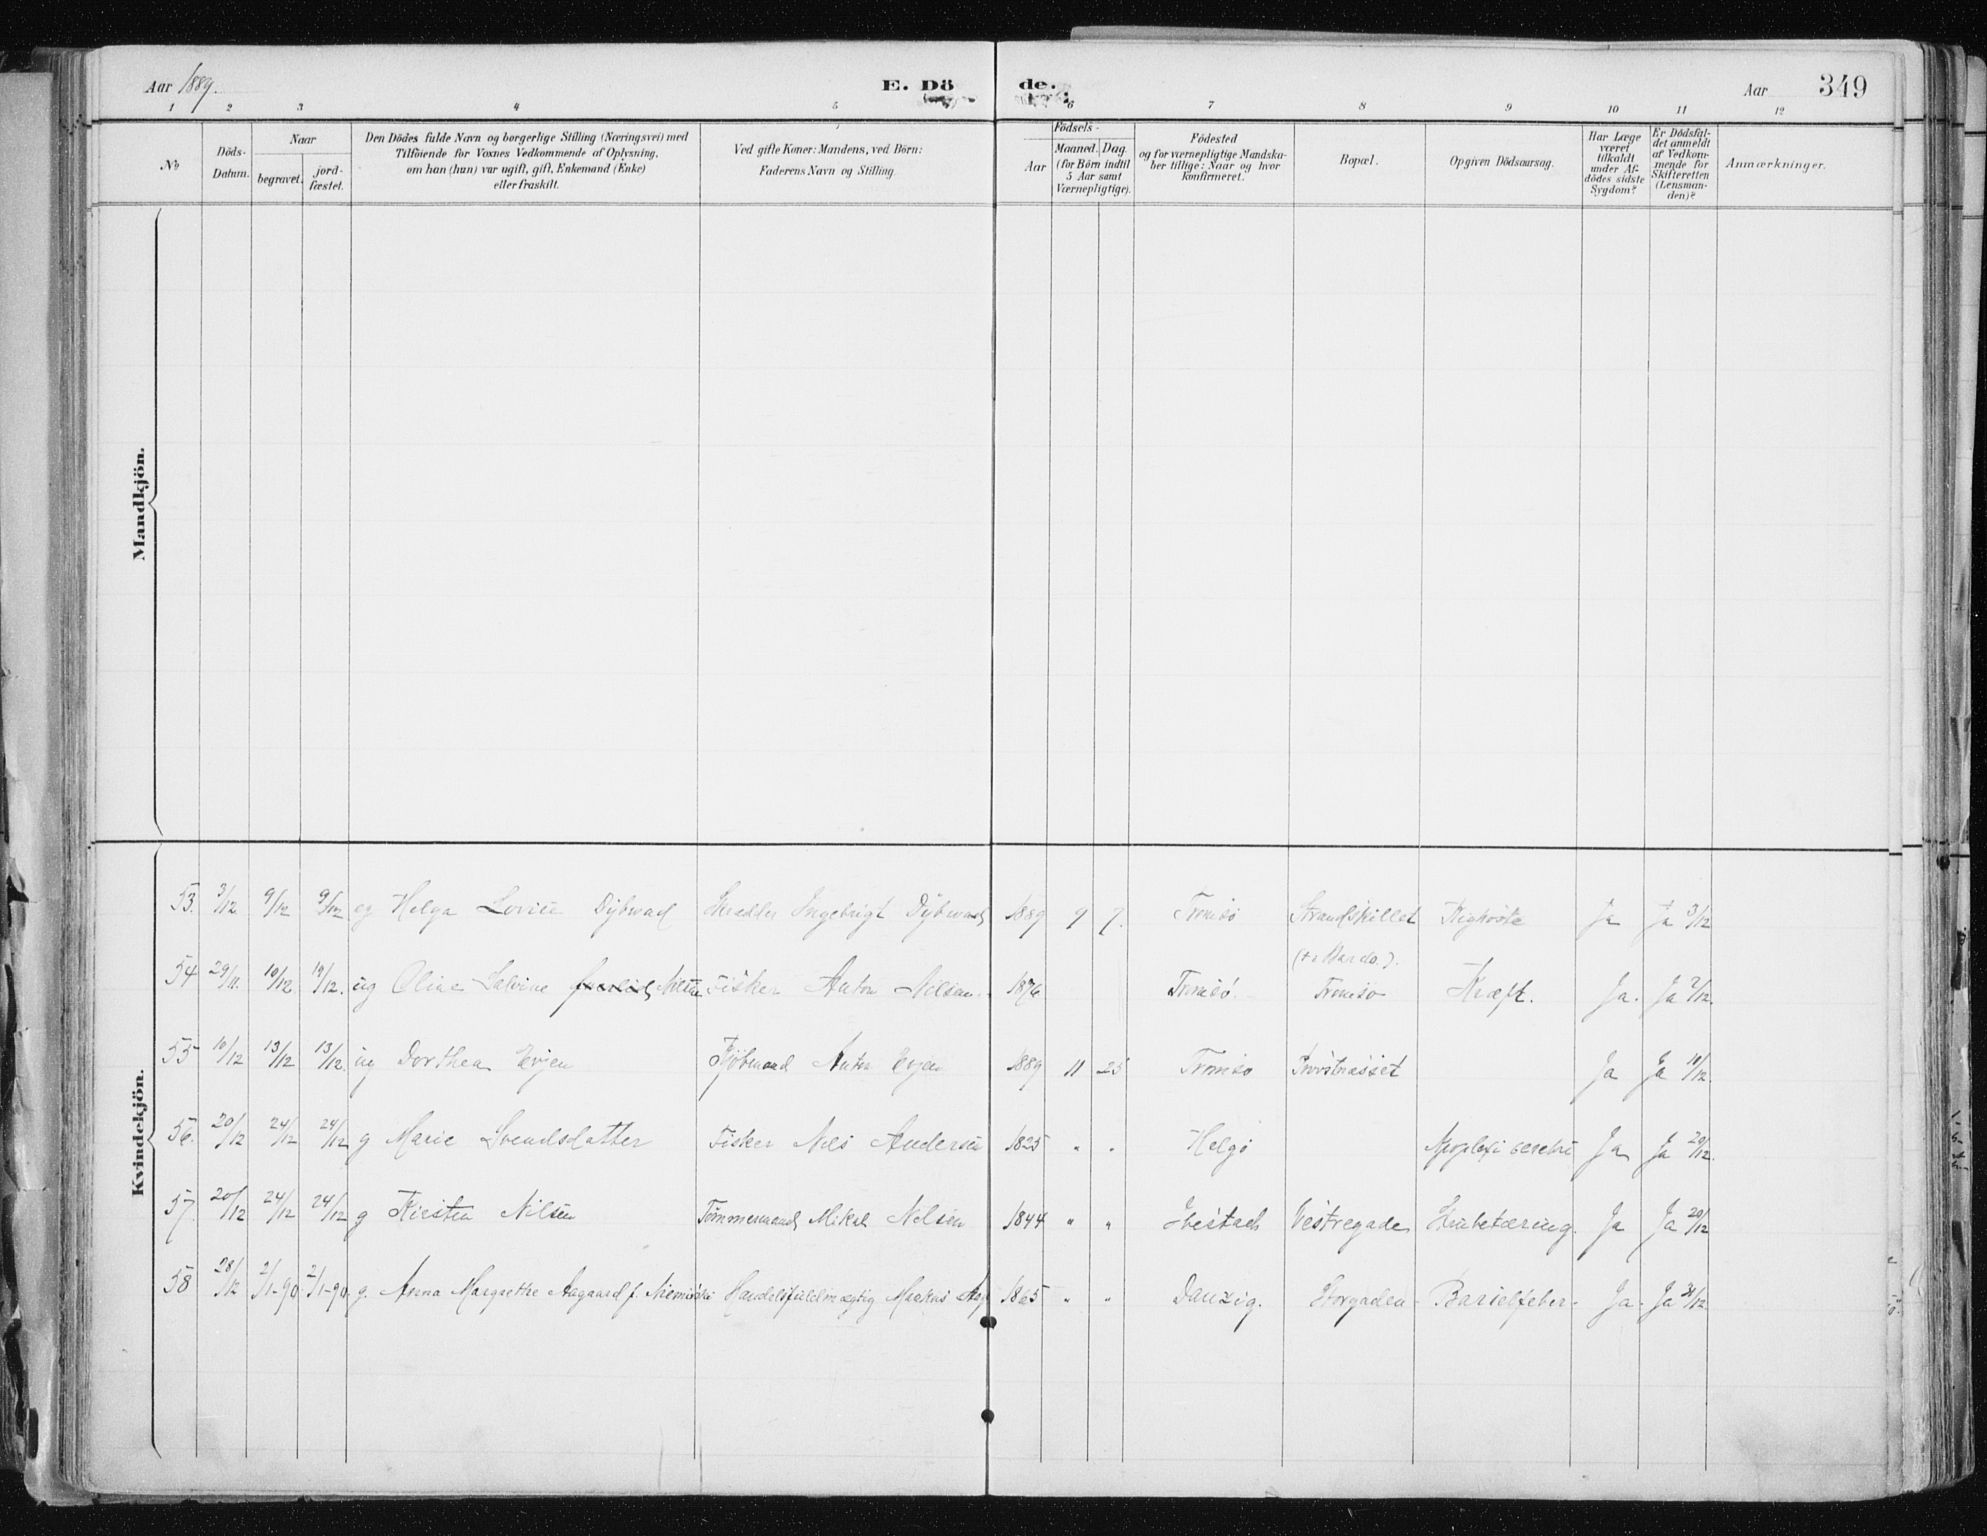 Aar 1889. E. Dö de. Aar 349
1 2 3 4 5 6 7 8 9 10 11 12
No
Döds-Datum.
Naar
begravet.
jord-fæstet.
Den Dödes fulde Navn og borgerlige Stilling (Næringsvei) med
Tilföiende for Voxnes Vedkommende af Oplysning,
om han (hun) var ugift, gift, Enkemand (Enke)
eller fraskilt.
Ved gifte Koner: Mandens, ved Börn:
Faderens Navn og Stilling.
Födsels-
Aar
Maaned. Dag.
(for Börn indtil
5 Aar samt
Værnepligtige).
Födested
og for værnepligtige Mandska-
ber tillige: Naar og hvor
konfirmeret.
Bopæl.
Opgiven Dödsaarsag.
Har Læge
været
tilkaldt
under Af-
dödes sidste
Sygdom?
Er Dödsfal-
det anmeldt
af Vedkom-
mende for
Skifteretten
(Lensman-
den)?
Anmærkninger.
Mandkjön.
Kvindekjön.
53. 3/12 9/12 9/12 ug Helga Lovise Dybwad Ingebrigt Dybwad 1889 9 7. Tromsö Strandskillet Kighoste Ja Ja 3/12
(+ i Bardo.).
54 29/11. 10/12 19/12. ug Oline Salvine Nilsen Fisker Anton Nilsen. 1876 Tromsö. Tromsö Kræft. Ja. Ja 2/12.
55 10/12 13/12 13/12. ug Dorthea Evjen Kjöbmand Anton Evjen 1889 11 25 Tromsö Provstnæsset Ja Ja 10/12.
56. 20/12 24/12 24/12 g Marie Svendsdatter Fisker Nils Andersen 1825 " " Helgö Apoplexi cerebri Ja Ja 20/12.
57. 20/12 24/12 24/12 g Kirsten Nilsen Tömmermand Mikal Nilsen 1844 " " Ibestad Vestregade Ja Ja 20/12
58 28/12 2/1-90 2/1-90. g. Anna Margrethe Aagaard f. Handelsfuldmægtig Markus Aag 1865 " " Danzig. Storgaden Barselfeber. Ja. Ja 31/12